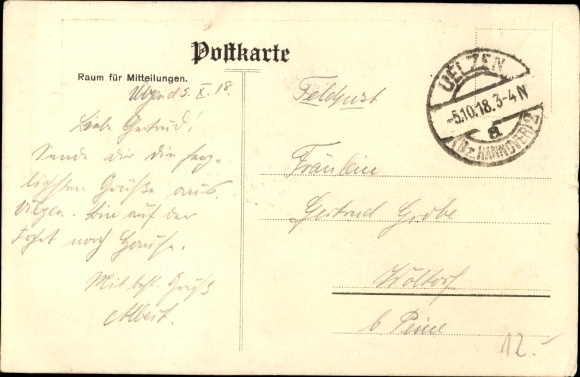 Postkarte
Raum für Mitteilungen.
5. X. 18.
Liebe Gertrud!
Sende dir die herz-
lichsten Grüße aus
Ülzen. Bin auf der
Fahrt nach Hause.
Mit hzl. Gruß
Albert.
Feldpost
UELZEN
-5.10.18. 3-4 N
a
(Bz. HANNOVER) 2
Fräulein
Gertrud Grobe
Wöltorf
b. Peine
12.-